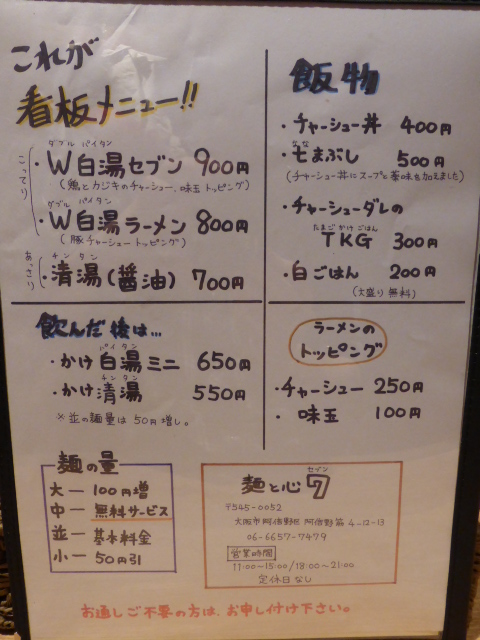 これが
看板メニュー!!
こってり
ダブル パイタン
・W白湯セブン 900円
(鶏とカジキのチャーシュー、味玉トッピング)
ダブル パイタン
・W白湯ラーメン 800円
(豚チャーシュートッピング)
あっさり
チンタン
・清湯(醤油) 700円
飲んだ後は…
パイタン
・かけ白湯ミニ 650円
チンタン
・かけ清湯 550円
※並の麺量は50円増し。
飯物
・チャーシュー丼 400円
なな
・七まぶし 500円
(チャーシュー丼にスープと薬味を加えました)
・チャーシューダレの
たまごかけごはん
TKG 300円
・白ごはん 200円
(大盛り無料)
ラーメンの
トッピング
・チャーシュー 250円
・味玉 100円
麺の量
大ー100円増
中ー無料サービス
並ー基本料金
小ー50円引
セブン
麺と心 7
〒545-0052
大阪市阿倍野区阿倍野筋4-12-13
06-6657-7479
営業時間
11:00~15:00/18:00~21:00
定休日なし
お通しご不要の方は、お申し付け下さい。